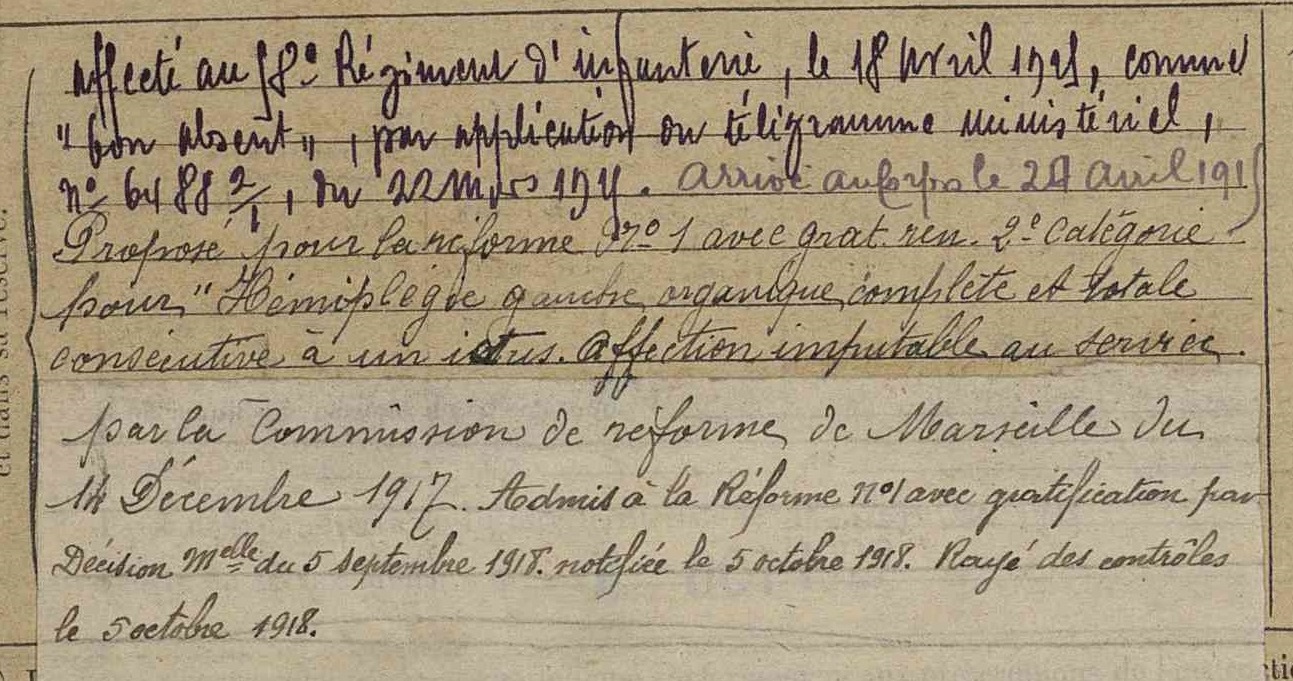 affecté au 58e Régiment d'infanterie, le 18 Avril 1915, comme
"bon absent", par application du télégramme ministériel,
n° 6488 2/1, du 22 Mars 1915. Arrivé au Corps le 24 Avril 1915
Proposé pour la réforme N° 1 avec grat. ren. 2e Catégorie
pour "Hémiplégie gauche organique complète et totale
consécutive à un ictus. Affection imputable au service.
par la Commission de réforme de Marseille du
14 Décembre 1917. Admis à la Réforme n°1 avec gratification par
Décision Melle du 5 septembre 1918. notifiée le 5 octobre 1918. Rayé des contrôles
le 5 octobre 1918.
et dans sa réserve.